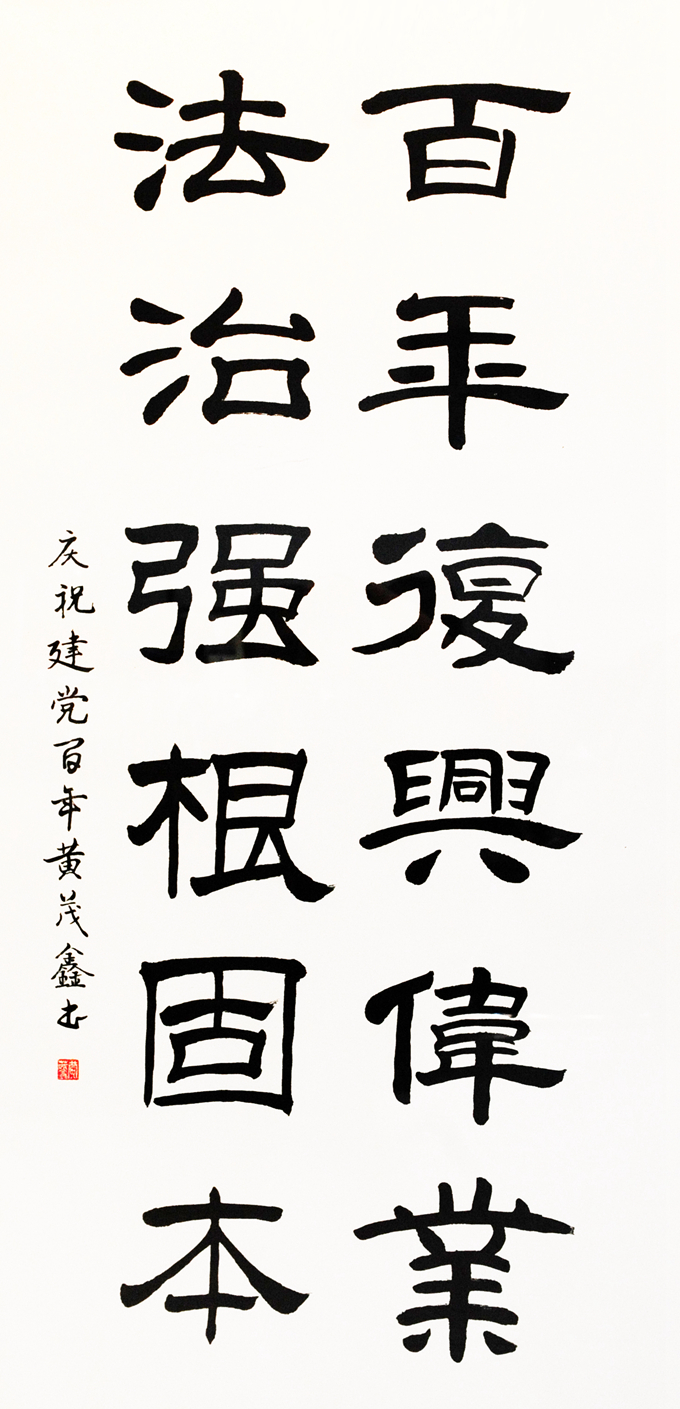 百年復興偉業
法治强根固本
庆祝建党百年黄茂鑫书